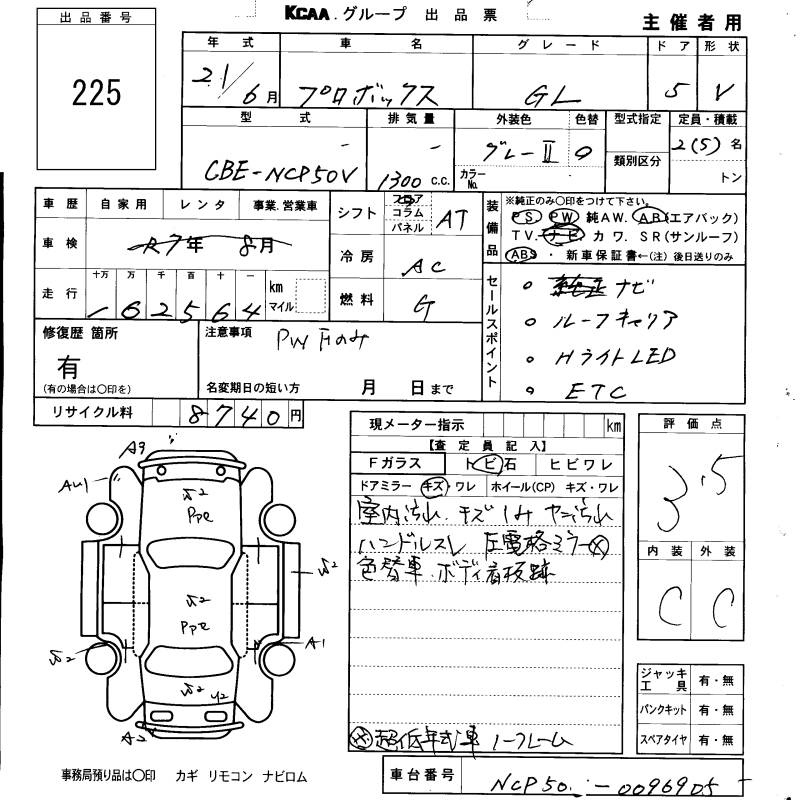 出品番号
225
KCAA.グループ 出品票
主催者用
年式 車名 グレード ドア 形状
21/6月 プロボックス GL 5 V
型式 排気量 外装色 色替 型式指定 定員・積載
CBE-NCP50V 1300 c.c. グレーII カラーNo. 類別区分 2(5)名
トン
車歴 自家用 レンタ 事業.営業車
車検 R7年 8月
走行 十万 万 千 百 十 一 km マイル
162564
シフト フロア コラム パネル AT
冷房 AC
燃料 G
装備品 ※純正のみ○印をつけて下さい。
PS PW 純AW. AB(エアバック)
TV. ナビ カワ. SR(サンルーフ)
ABS ・ 新車保証書←(注)後日送りのみ
セールスポイント
○ 純正ナビ
○ ルーフキャリア
○ HライトLED
○ ETC
修復歴 箇所
有
(有の場合は○印を)
注意事項
PW Fのみ
名変期日の短い方 月 日まで
リサイクル料 8740円
現メーター指示 km
【査定員記入】
Fガラス トビ石 ヒビワレ
ドアミラー キズ・ワレ ホイール(CP) キズ・ワレ
室内汚れ.キズ しみ ヤニ汚れ
ハンドルスレ 左電格ミラー×
色替車.ボディ看板跡
超低年式車 ノークレーム
評価点
3.5
内装 外装
C C
ジャッキ工具 有・無
パンクキット 有・無
スペアタイヤ 有・無
A9
AU1
W2
PPe
W2
W2
PPe
A1
W2
W2
U2
A2
事務局預り品は○印 カギ リモコン ナビロム
車台番号 NCP50-0096905